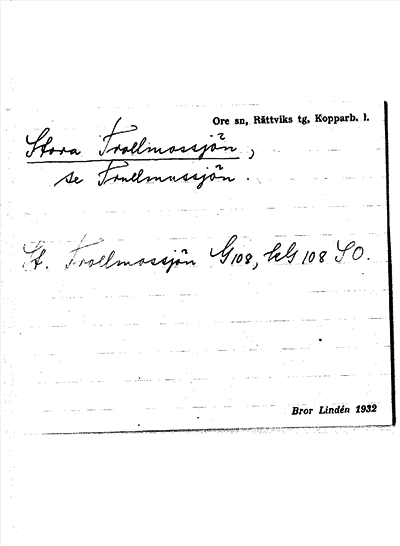 Ore sn, Rättviks tg, Kopparb. l.
Stora Trollmossjön,
se Trollmussjön.
St. Trollmossjön G108, kG 108 SO.
Bror Lindén 1932